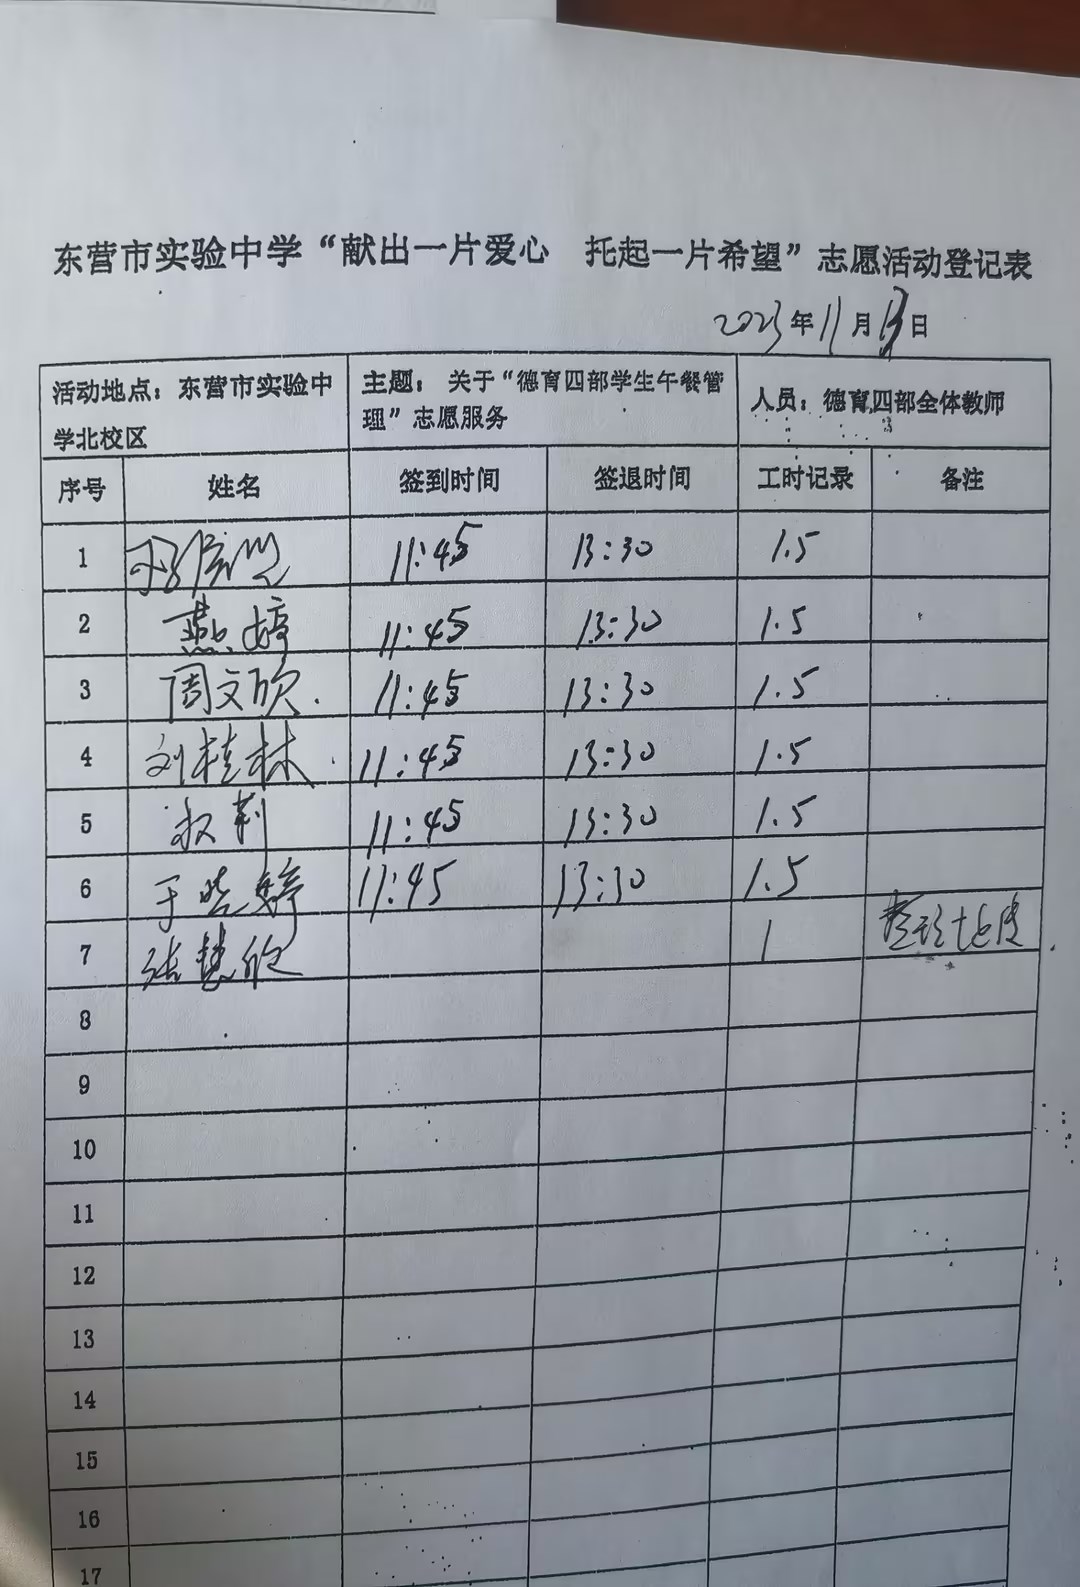 东营市实验中学“献出一片爱心 托起一片希望”志愿活动登记表
2023年11月13日
活动地点：东营市实验中学北校区 主题：关于“德育四部学生午餐管理”志愿服务 人员：德育四部全体教师
序号 姓名 签到时间 签退时间 工时记录 备注
1 11:45 13:30 1.5
2 燕婷 11:45 13:30 1.5
3 周文欣 11:45 13:30 1.5
4 刘桂林 11:45 13:30 1.5
5 11:45 13:30 1.5
6 于晓婷 11:45 13:30 1.5
7 张慧欣 1
8
9
10
11
12
13
14
15
16
17